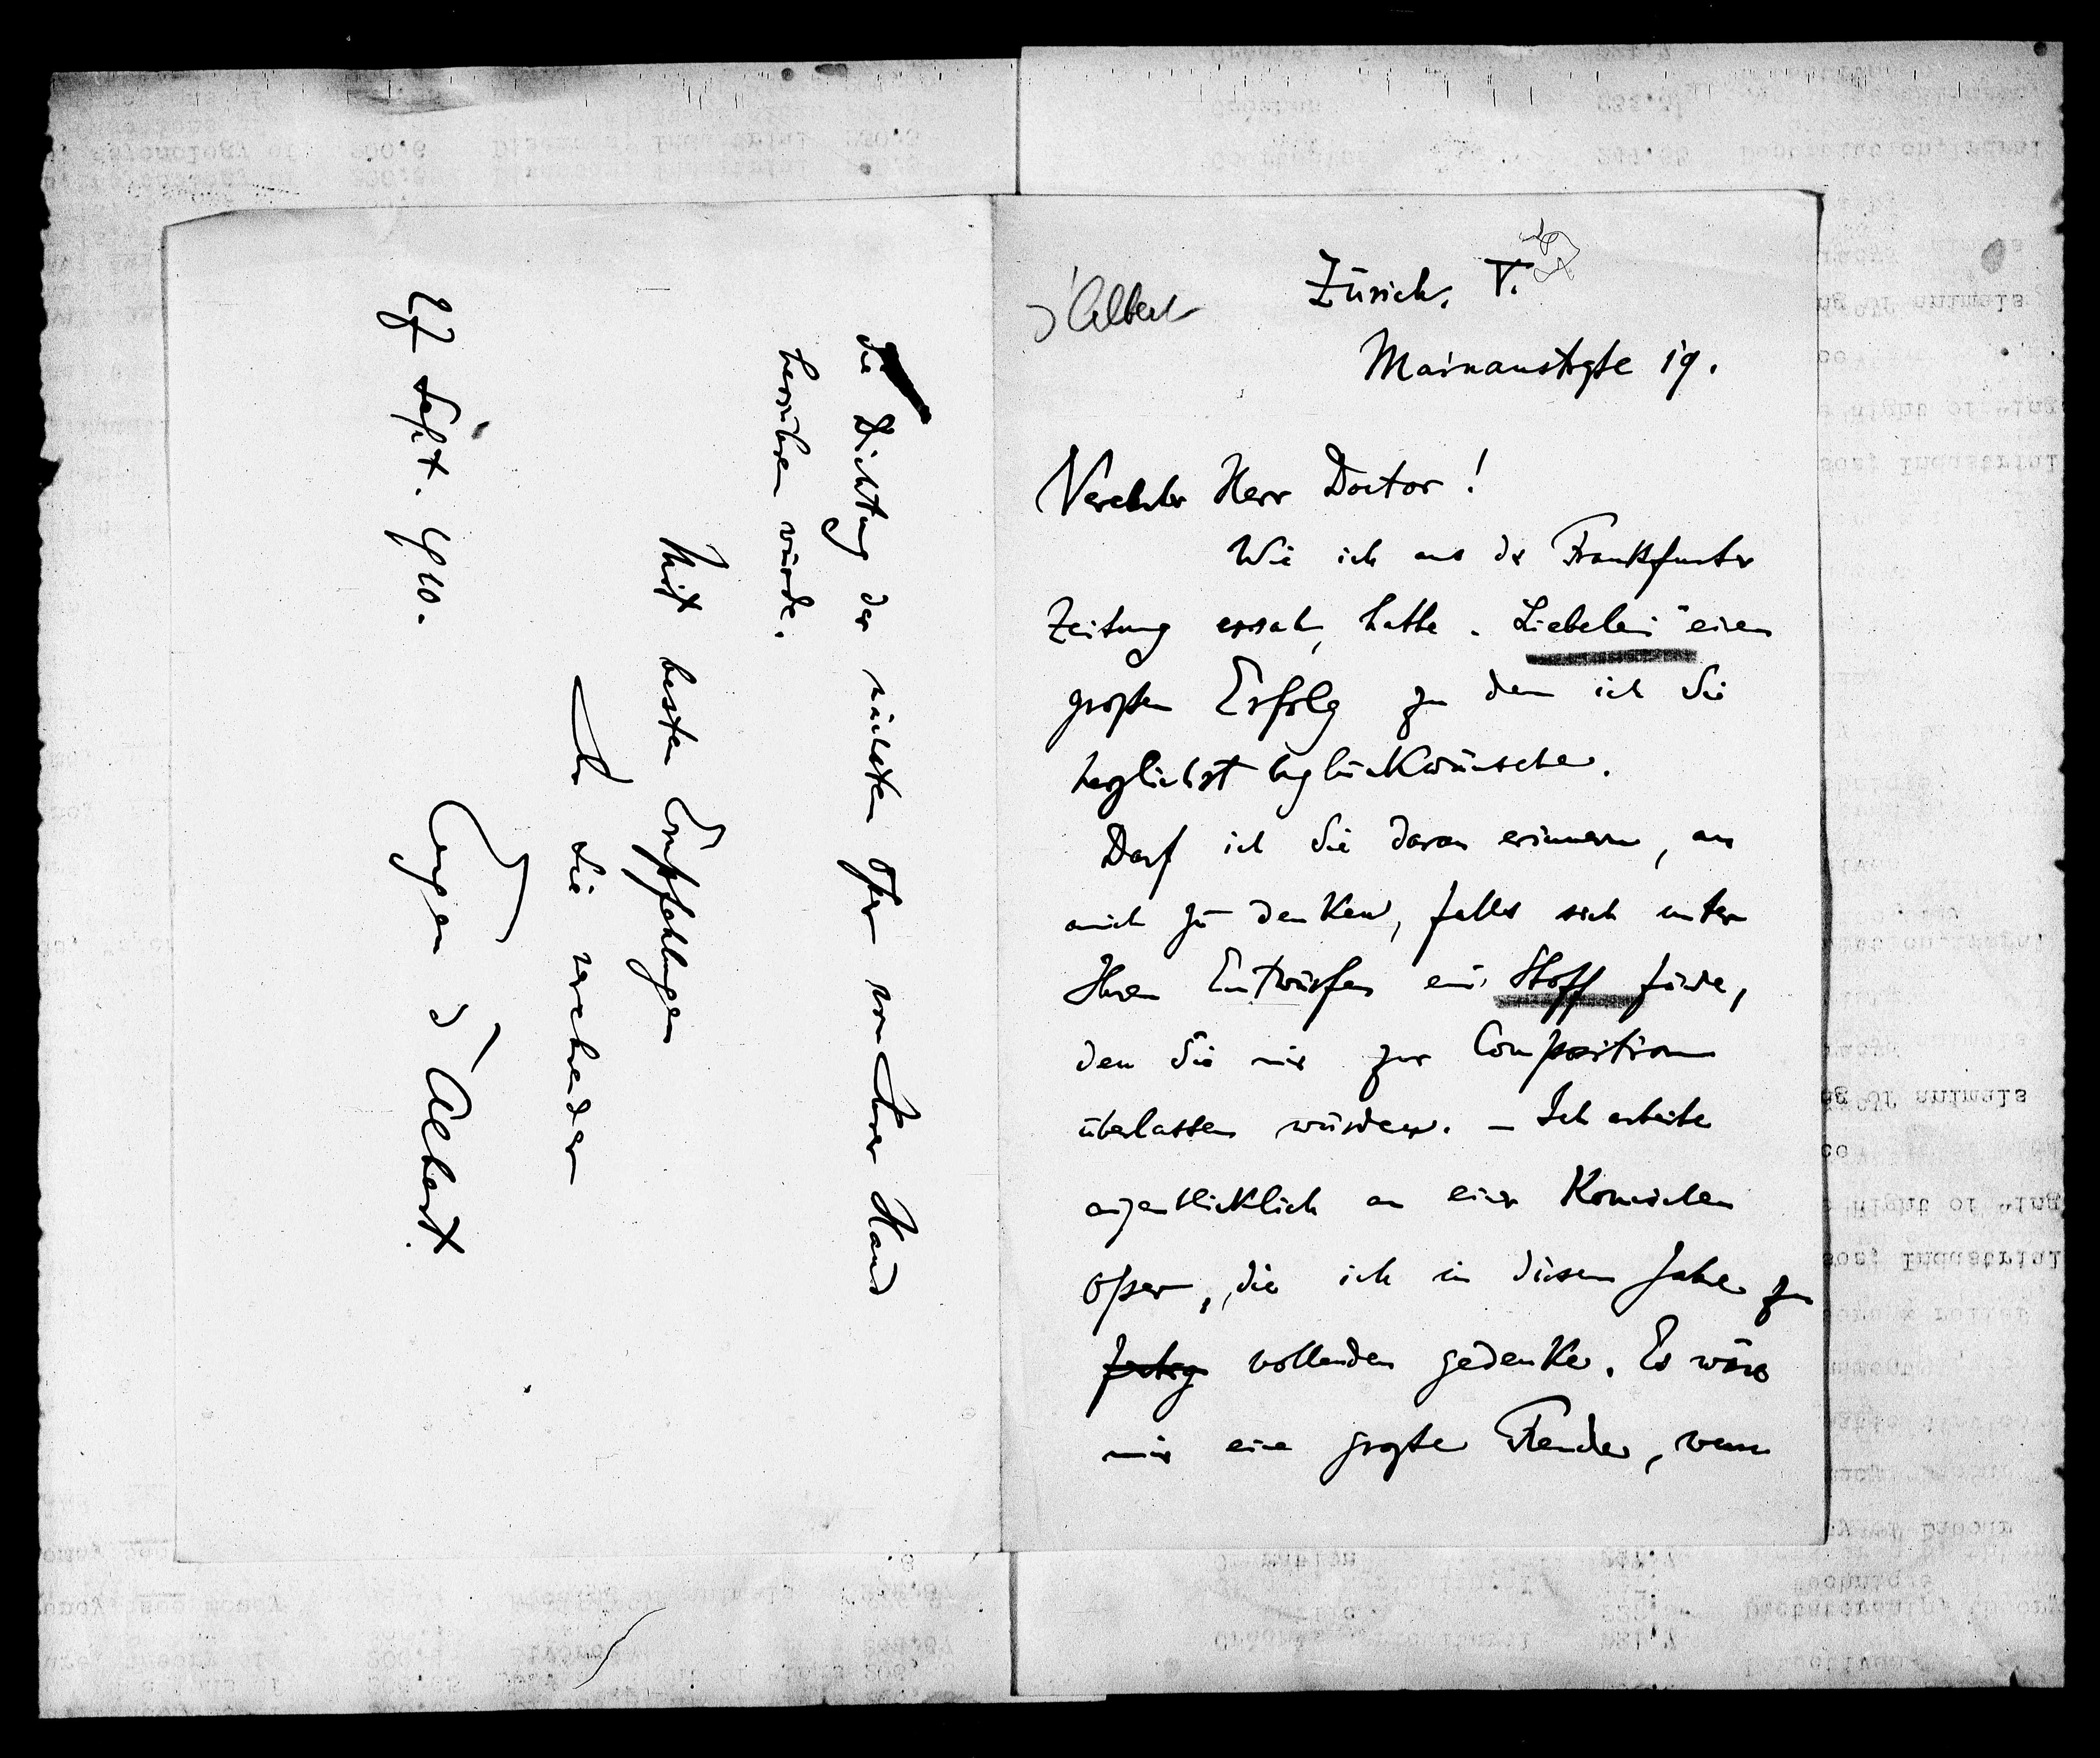 d'Albert
Zürich. V.
Mainaustrße 19.
Verehrter Herr Doctor!
Wie ich aus der Frankfurter
Zeitung ersah, hatte „Liebelei" einen
großen Erfolg zu dem ich Sie
herzlichst beglückwünsche.
Darf ich Sie daran erinnern, an
mich zu denken, falls sich unter
Ihren Entwürfen ein Stoff fände,
den Sie mir zur Composition
überlassen würden. – Ich arbeite
augenblicklich an einer Komischen
Oper, die ich in diesem Jahre zu
fertig vollenden gedenke. Es wäre
mir eine große Freude, wenn
die Dichtung der nächsten Oper von Ihrer Hand
herrühren würde.
Mit besten Empfehlungen
Ihr Sie verehrender
Eugen d'Albert.
Sept. 1910.